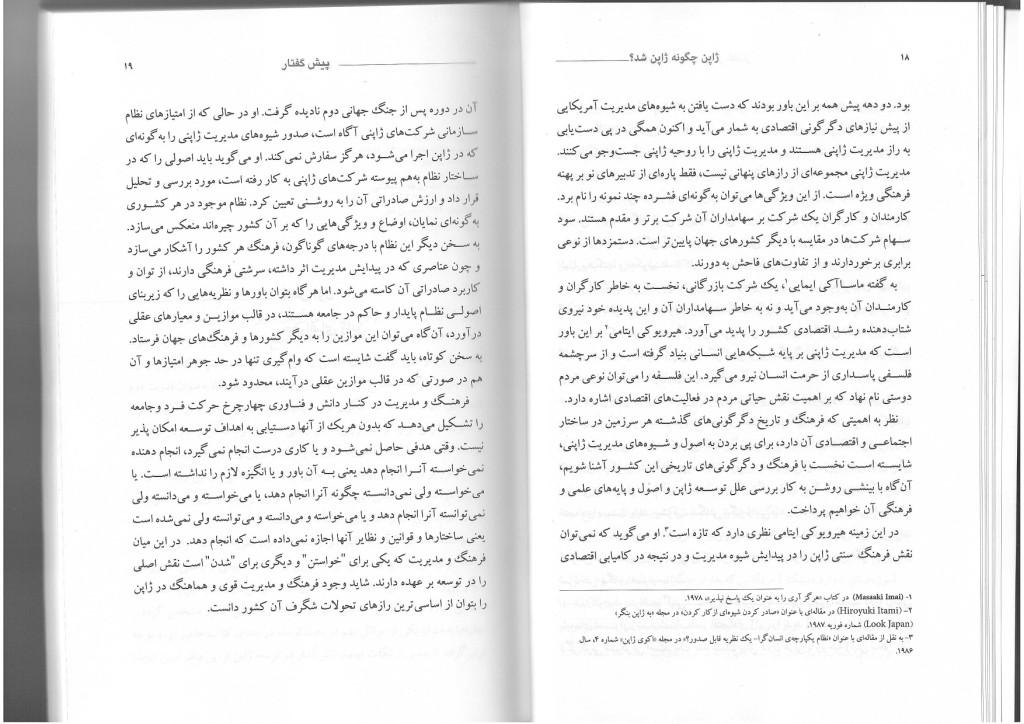 ۱۸
ژاپن چگونه ژاپن شد؟
بود. دو دهه پیش همه بر این باور بودند که دست یافتن به شیوه‌های مدیریت آمریکایی
از پیش نیازهای دگرگونی اقتصادی به شمار می‌آید و اکنون همگی در پی دست‌یابی
به راز مدیریت ژاپنی هستند و مدیریت ژاپنی را با روحیه ژاپنی جست‌وجو می‌کنند.
مدیریت ژاپنی مجموعه‌ای از رازهای پنهانی نیست، فقط پاره‌ای از تدبیرهای نو بر پهنه
فرهنگی ویژه است. از این ویژگی‌ها می‌توان به‌گونه‌ای فشرده چند نمونه را نام برد.
کارمندان و کارگران یک شرکت بر سهامداران آن شرکت برتر و مقدم هستند. سود
سهام شرکت‌ها در مقایسه با دیگر کشورهای جهان پایین‌تر است. دستمزدها از نوعی
برابری برخوردارند و از تفاوت‌های فاحش به دورند.
به گفته ماساآکی ایمایی۱، یک شرکت بازرگانی، نخست به خاطر کارگران و
کارمندان آن به‌وجود می‌آید و نه به خاطر سهامداران آن و این پدیده خود نیروی
شتاب‌دهنده رشد اقتصادی کشور را پدید می‌آورد. هیرویوکی ایتامی۲ بر این باور
است که مدیریت ژاپنی بر پایه شبکه‌هایی انسانی بنیاد گرفته است و از سرچشمه
فلسفی پاسداری از حرمت انسان نیرو می‌گیرد. این فلسفه را می‌توان نوعی مردم
دوستی نام نهاد که بر اهمیت نقش حیاتی مردم در فعالیت‌های اقتصادی اشاره دارد.
نظر به اهمیتی که فرهنگ و تاریخ دگرگونی‌های گذشته هر سرزمین در ساختار
اجتماعی و اقتصادی آن دارد، برای پی بردن به اصول و شیوه‌های مدیریت ژاپنی،
شایسته است نخست با فرهنگ و دگرگونی‌های تاریخی این کشور آشنا شویم،
آن‌گاه با بینشی روشن به کار بررسی علل توسعه ژاپن و اصول و پایه‌های علمی و
فرهنگی آن خواهیم پرداخت.
در این زمینه هیرویوکی ایتامی نظری دارد که تازه است۳. او می‌گوید که نمی‌توان
نقش فرهنگ سنتی ژاپن را در پیدایش شیوه مدیریت و در نتیجه در کامیابی اقتصادی
۱- (Masaaki Imai) در کتاب «هرگز آری را به عنوان یک پاسخ نپذیر»، ۱۹۷۸.
۲- (Hiroyuki Itami) در مقاله‌ای با عنوان «صادر کردن شیوه‌ای از کار کردن» در مجله «به ژاپن بنگر»
(Look Japan) شماره فوریه ۱۹۸۷.
۳- به نقل از مقاله‌ای با عنوان «نظام یکپارچه‌ی انسان‌گرا- یک نظریه قابل صدور؟» در مجله «اکوی ژاپن» شماره ۴، سال
۱۹۸۶.
پیش گفتار
۱۹
آن در دوره پس از جنگ جهانی دوم نادیده گرفت. او در حالی که از امتیازهای نظام
سازمانی شرکت‌های ژاپنی آگاه است، صدور شیوه‌های مدیریت ژاپنی را به‌گونه‌ای
که در ژاپن اجرا می‌شود، هرگز سفارش نمی‌کند. او می‌گوید باید اصولی را که در
ساختار نظام به‌هم پیوسته شرکت‌های ژاپنی به کار رفته است، مورد بررسی و تحلیل
قرار داد و ارزش صادراتی آن را به روشنی تعیین کرد. نظام موجود در هر کشوری
به‌گونه‌ای نمایان، اوضاع و ویژگی‌هایی را که بر آن کشور چیره‌اند منعکس می‌سازد.
به سخن دیگر این نظام با درجه‌های گوناگون، فرهنگ هر کشور را آشکار می‌سازد
و چون عناصری که در پیدایش مدیریت اثر داشته، سرشتی فرهنگی دارند، از توان و
کاربرد صادراتی آن کاسته می‌شود. اما هرگاه بتوان باورها و نظریه‌هایی را که زیربنای
اصولی نظام پایدار و حاکم در جامعه هستند، در قالب موازین و معیارهای عقلی
درآورد، آن‌گاه می‌توان این موازین را به دیگر کشورها و فرهنگ‌های جهان فرستاد.
به سخن کوتاه، باید گفت شایسته است که وام‌گیری تنها در حد جوهر امتیازها و آن
هم در صورتی که در قالب موازین عقلی درآیند، محدود شود.
فرهنگ و مدیریت در کنار دانش و فناوری چهارچرخ حرکت فرد وجامعه
را تشکیل می‌دهد که بدون هریک از آنها دستیابی به اهداف توسعه امکان پذیر
نیست. وقتی هدفی حاصل نمی‌شود و یا کاری درست انجام نمی‌گیرد، انجام دهنده
نمی‌خواسته آنرا انجام دهد یعنی به آن باور و یا انگیزه لازم را نداشته است. یا
می‌خواسته ولی نمی‌دانسته چگونه آنرا انجام دهد، یا می‌خواسته و می‌دانسته ولی
نمی‌توانسته آنرا انجام دهد و یا می‌خواسته و می‌دانسته و می‌توانسته ولی نمی‌شده است
یعنی ساختارها و قوانین و نظایر آنها اجازه نمی‌داده است که انجام دهد. در این میان
فرهنگ و مدیریت که یکی برای "خواستن" و دیگری برای "شدن" است نقش اصلی
را در توسعه بر عهده دارند. شاید وجود فرهنگ و مدیریت قوی و هماهنگ در ژاپن
را بتوان از اساسی‌ترین رازهای تحولات شگرف آن کشور دانست.